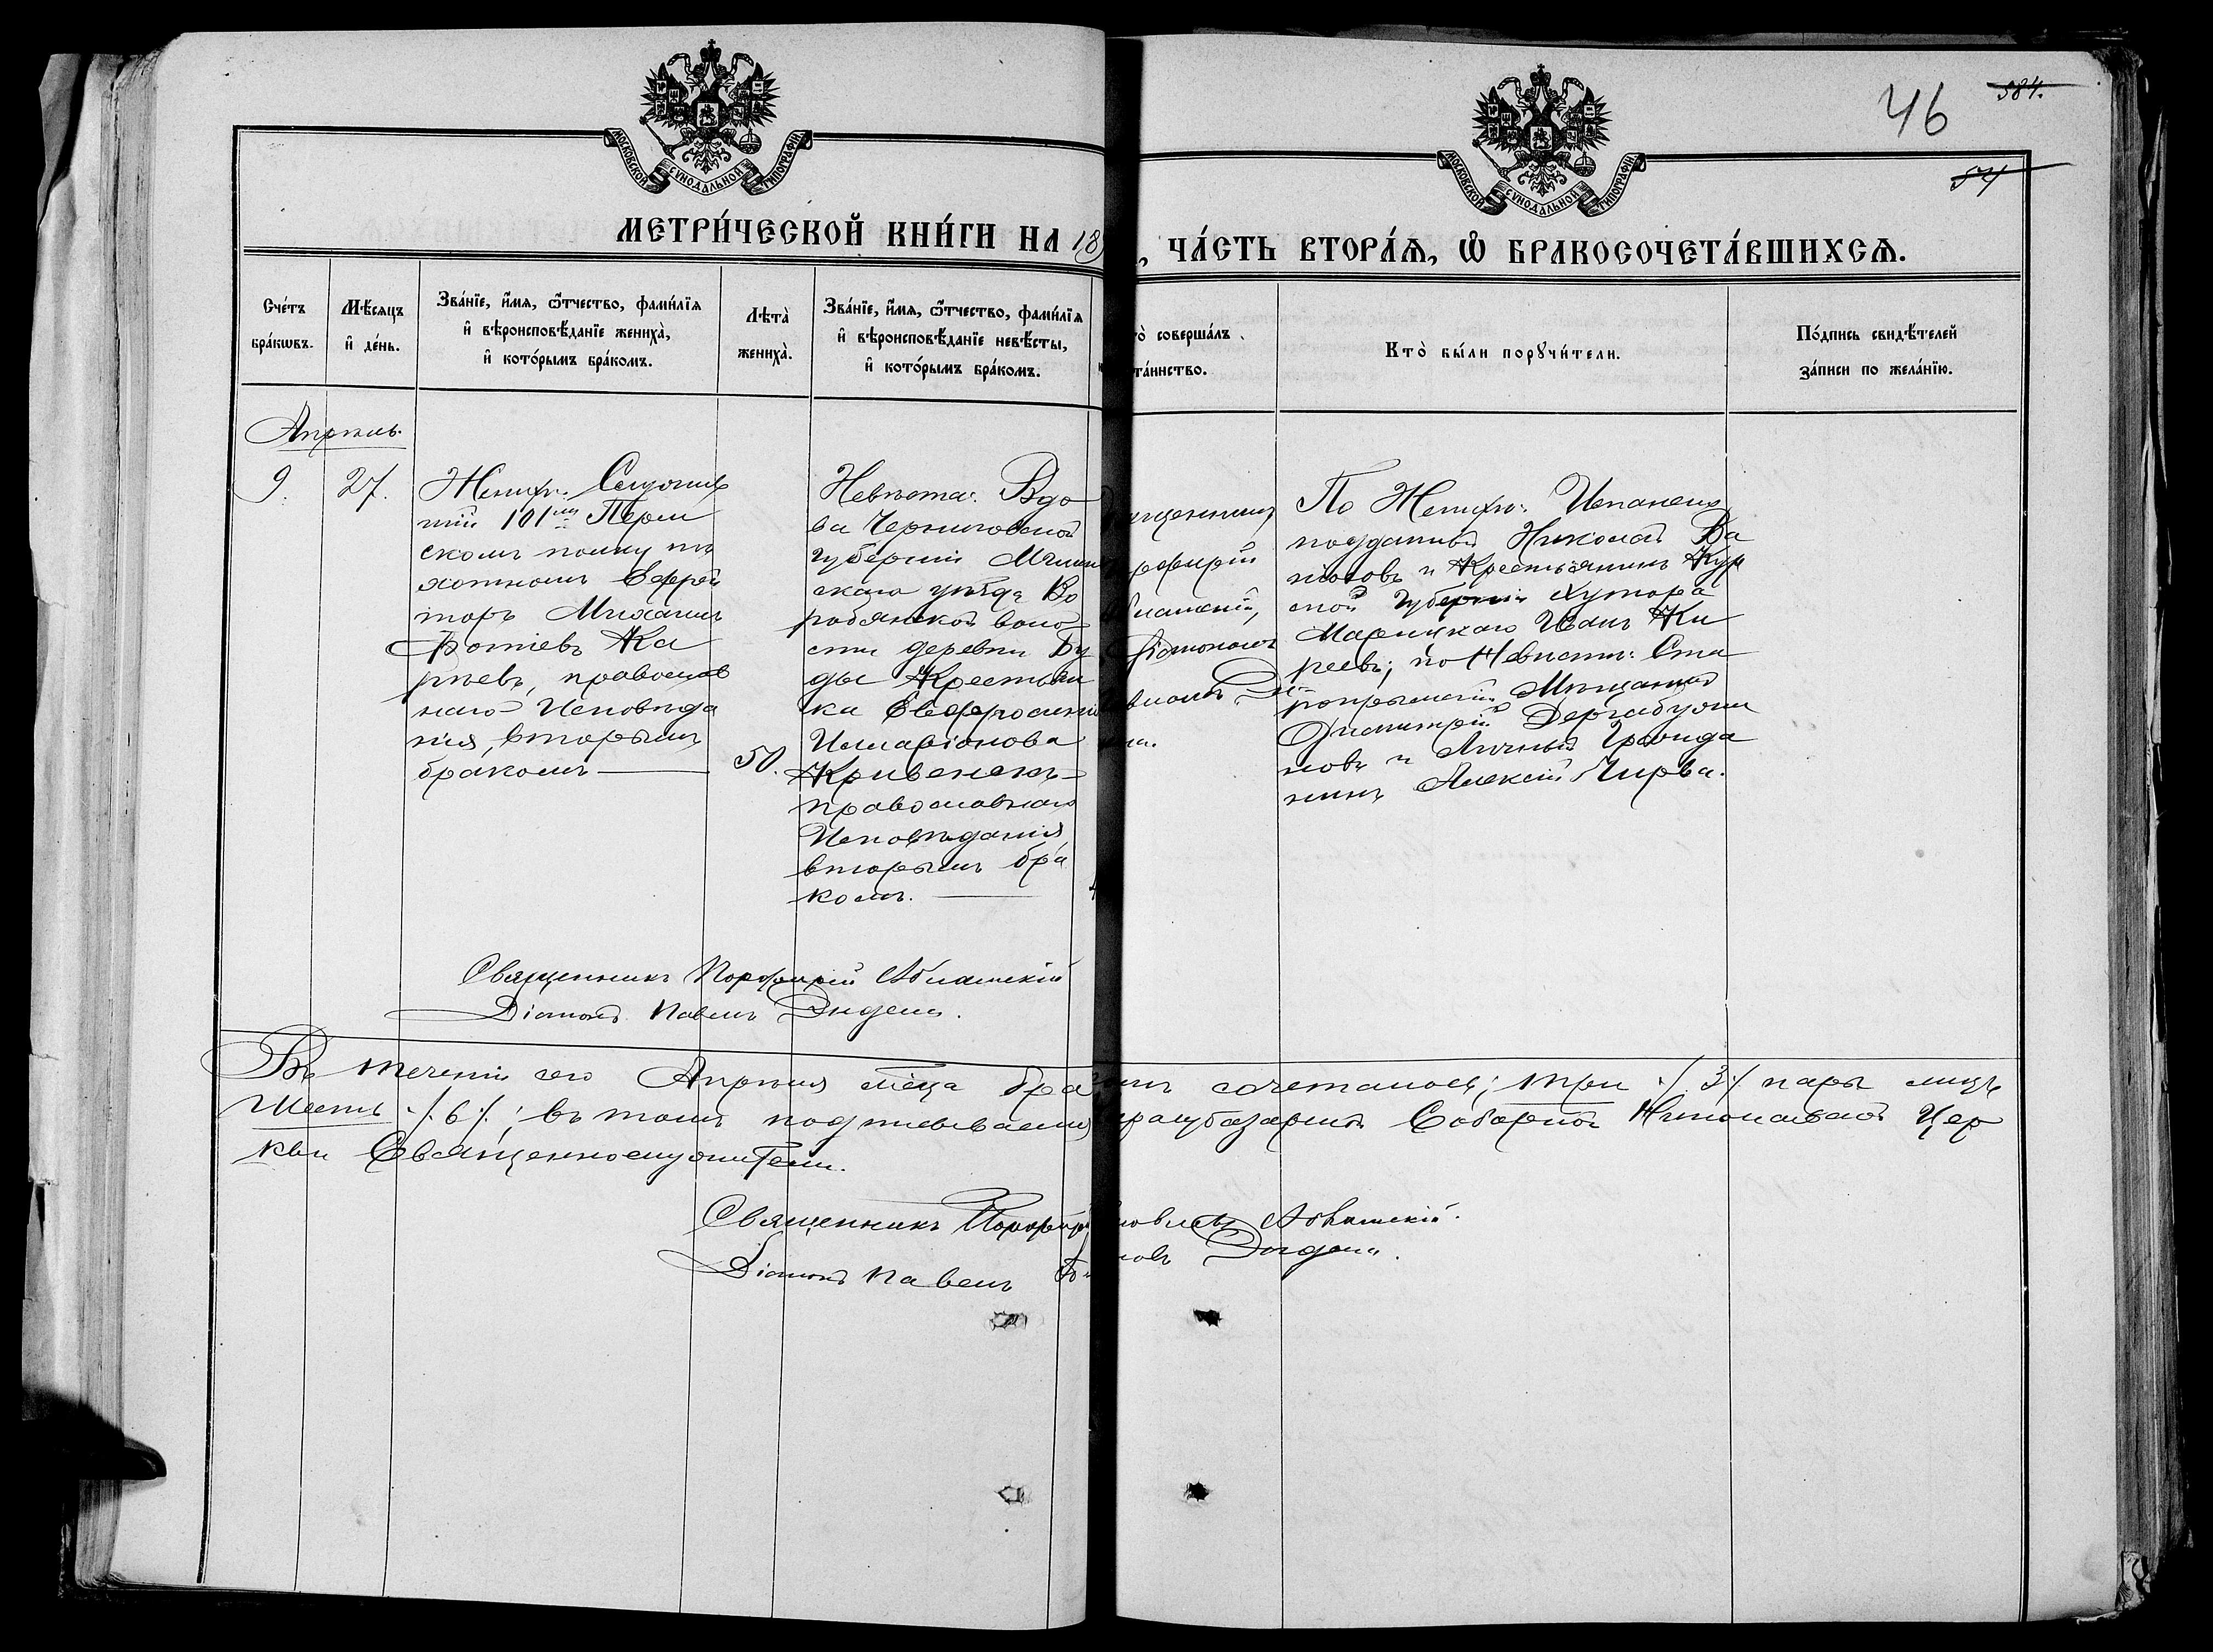 46 584.
54
МОСКОВСКОЙ СУНОДАЛЬНОЙ ТИПОГРАФІИ
МОСКОВСКОЙ СУНОДАЛЬНОЙ ТИПОГРАФІИ
МЕТРИ́ЧЕСКОЙ КНИ́ГИ НА 18
, ЧА́СТЬ ВТОРА́Ѧ, Ѿ БРАКОСОЧЕТА́ВШИХСѦ.
Сче́тъ
бра́кѡвъ.
Мѣ́сяцъ
и҆ де́нь.
Зва́нїе, и҆́мя, ѻ҆́тчество, фами́лїя
и҆ вѣроисповѣ́данїе жениха̀,
и҆ кото́рымъ бра́комъ.
Лѣта̀
жениха̀.
Зва́нїе, и҆́мя, ѻ҆́тчество, фами́лїя
и҆ вѣроисповѣ́данїе невѣ́сты,
и҆ кото́рымъ бра́комъ.
то̀ соверша́лъ
та́инство.
Кто̀ бы́ли порꙋчи́тели.
По́дпись свидѣ́телей
за́писи по жела́нїю.
Апрѣль.
9.
27.
Женихъ: Служив
шій 101му Перм
скомъ полку пѣ
хотномъ Ефрей
торъ Михаилъ
Фотіевъ Ка
рѣевъ, православ
наго Исповѣда
нія, вторымъ
бракомъ
50.
Невѣста: Вдо
ва Черниговской
губерніи Мглин
скаго уѣзда Во
робьянской воло
сти деревни Бу
ды Крестьян
ка Евфросинія
Иларіонова
Кривенекъ
православнаго
Исповѣданія
вторымъ бра
комъ.
ященникъ
рфирій
Діакономъ
По Женихѣ: Испанск
подданный Николай Ва
и Крестьянинъ Кур
ской Губерніи Хутора
Марицкаго Иванъ Ки
рѣевъ; по Невѣстѣ: Ста
рокрымскій Мѣщанинъ
Димитрій
новъ и Личный Гражда
нинъ Алексій Чирва.
Священникъ Порфирій
Діаконъ Павелъ Дидена.
Въ теченіи сего Апрѣля мѣсяца бра
комъ сочеталось; три /. 3 ./ пары лицъ
Шесть /. 6 ./; въ томъ подписываемся
Карасубазарской Соборной Николаевской Цер
кви Священнослужители.
Священникъ Порфирій
Діаконъ Павелъ
Дидена.